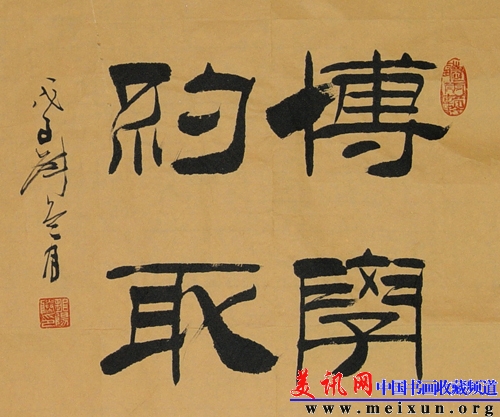 博學
約取
戊子
美讯网 中国书画收藏频道
www.meixun.org